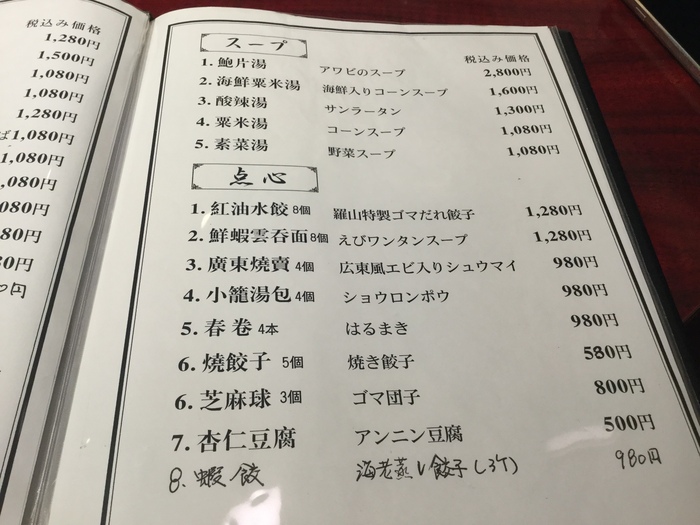 税込み価格
1,280円
1,500円
1,080円
1,080円
1,280円
ば1,080円
1,080円
,080円
080円
80円
80円
0円
スープ
税込み価格
1. 鮑片湯 アワビのスープ 2,800円
2. 海鮮粟米湯 海鮮入りコーンスープ 1,600円
3. 酸辣湯 サンラータン 1,300円
4. 粟米湯 コーンスープ 1,080円
5. 素菜湯 野菜スープ 1,080円
点心
1. 紅油水餃 8個 羅山特製ゴマだれ餃子 1,280円
2. 鮮蝦雲吞面 8個 えびワンタンスープ 1,280円
3. 廣東燒賣 4個 広東風エビ入りシュウマイ 980円
4. 小籠湯包 4個 ショウロンポウ 980円
5. 春卷 4本 はるまき 980円
6. 燒餃子 5個 焼き餃子 580円
6. 芝麻球 3個 ゴマ団子 800円
7. 杏仁豆腐 アンニン豆腐 500円
8. 蝦餃 海老蒸し餃子(3ケ) 980円